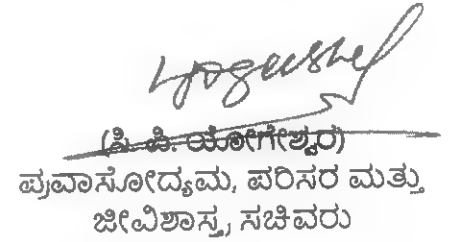 (ಸಿ. ಪಿ. ಯೋಗೇಶ್ವರ)
ಪ್ರವಾಸೋದ್ಯಮ, ಪರಿಸರ ಮತ್ತು
ಜೀವಿಶಾಸ್ತ್ರ ಸಚಿವರು